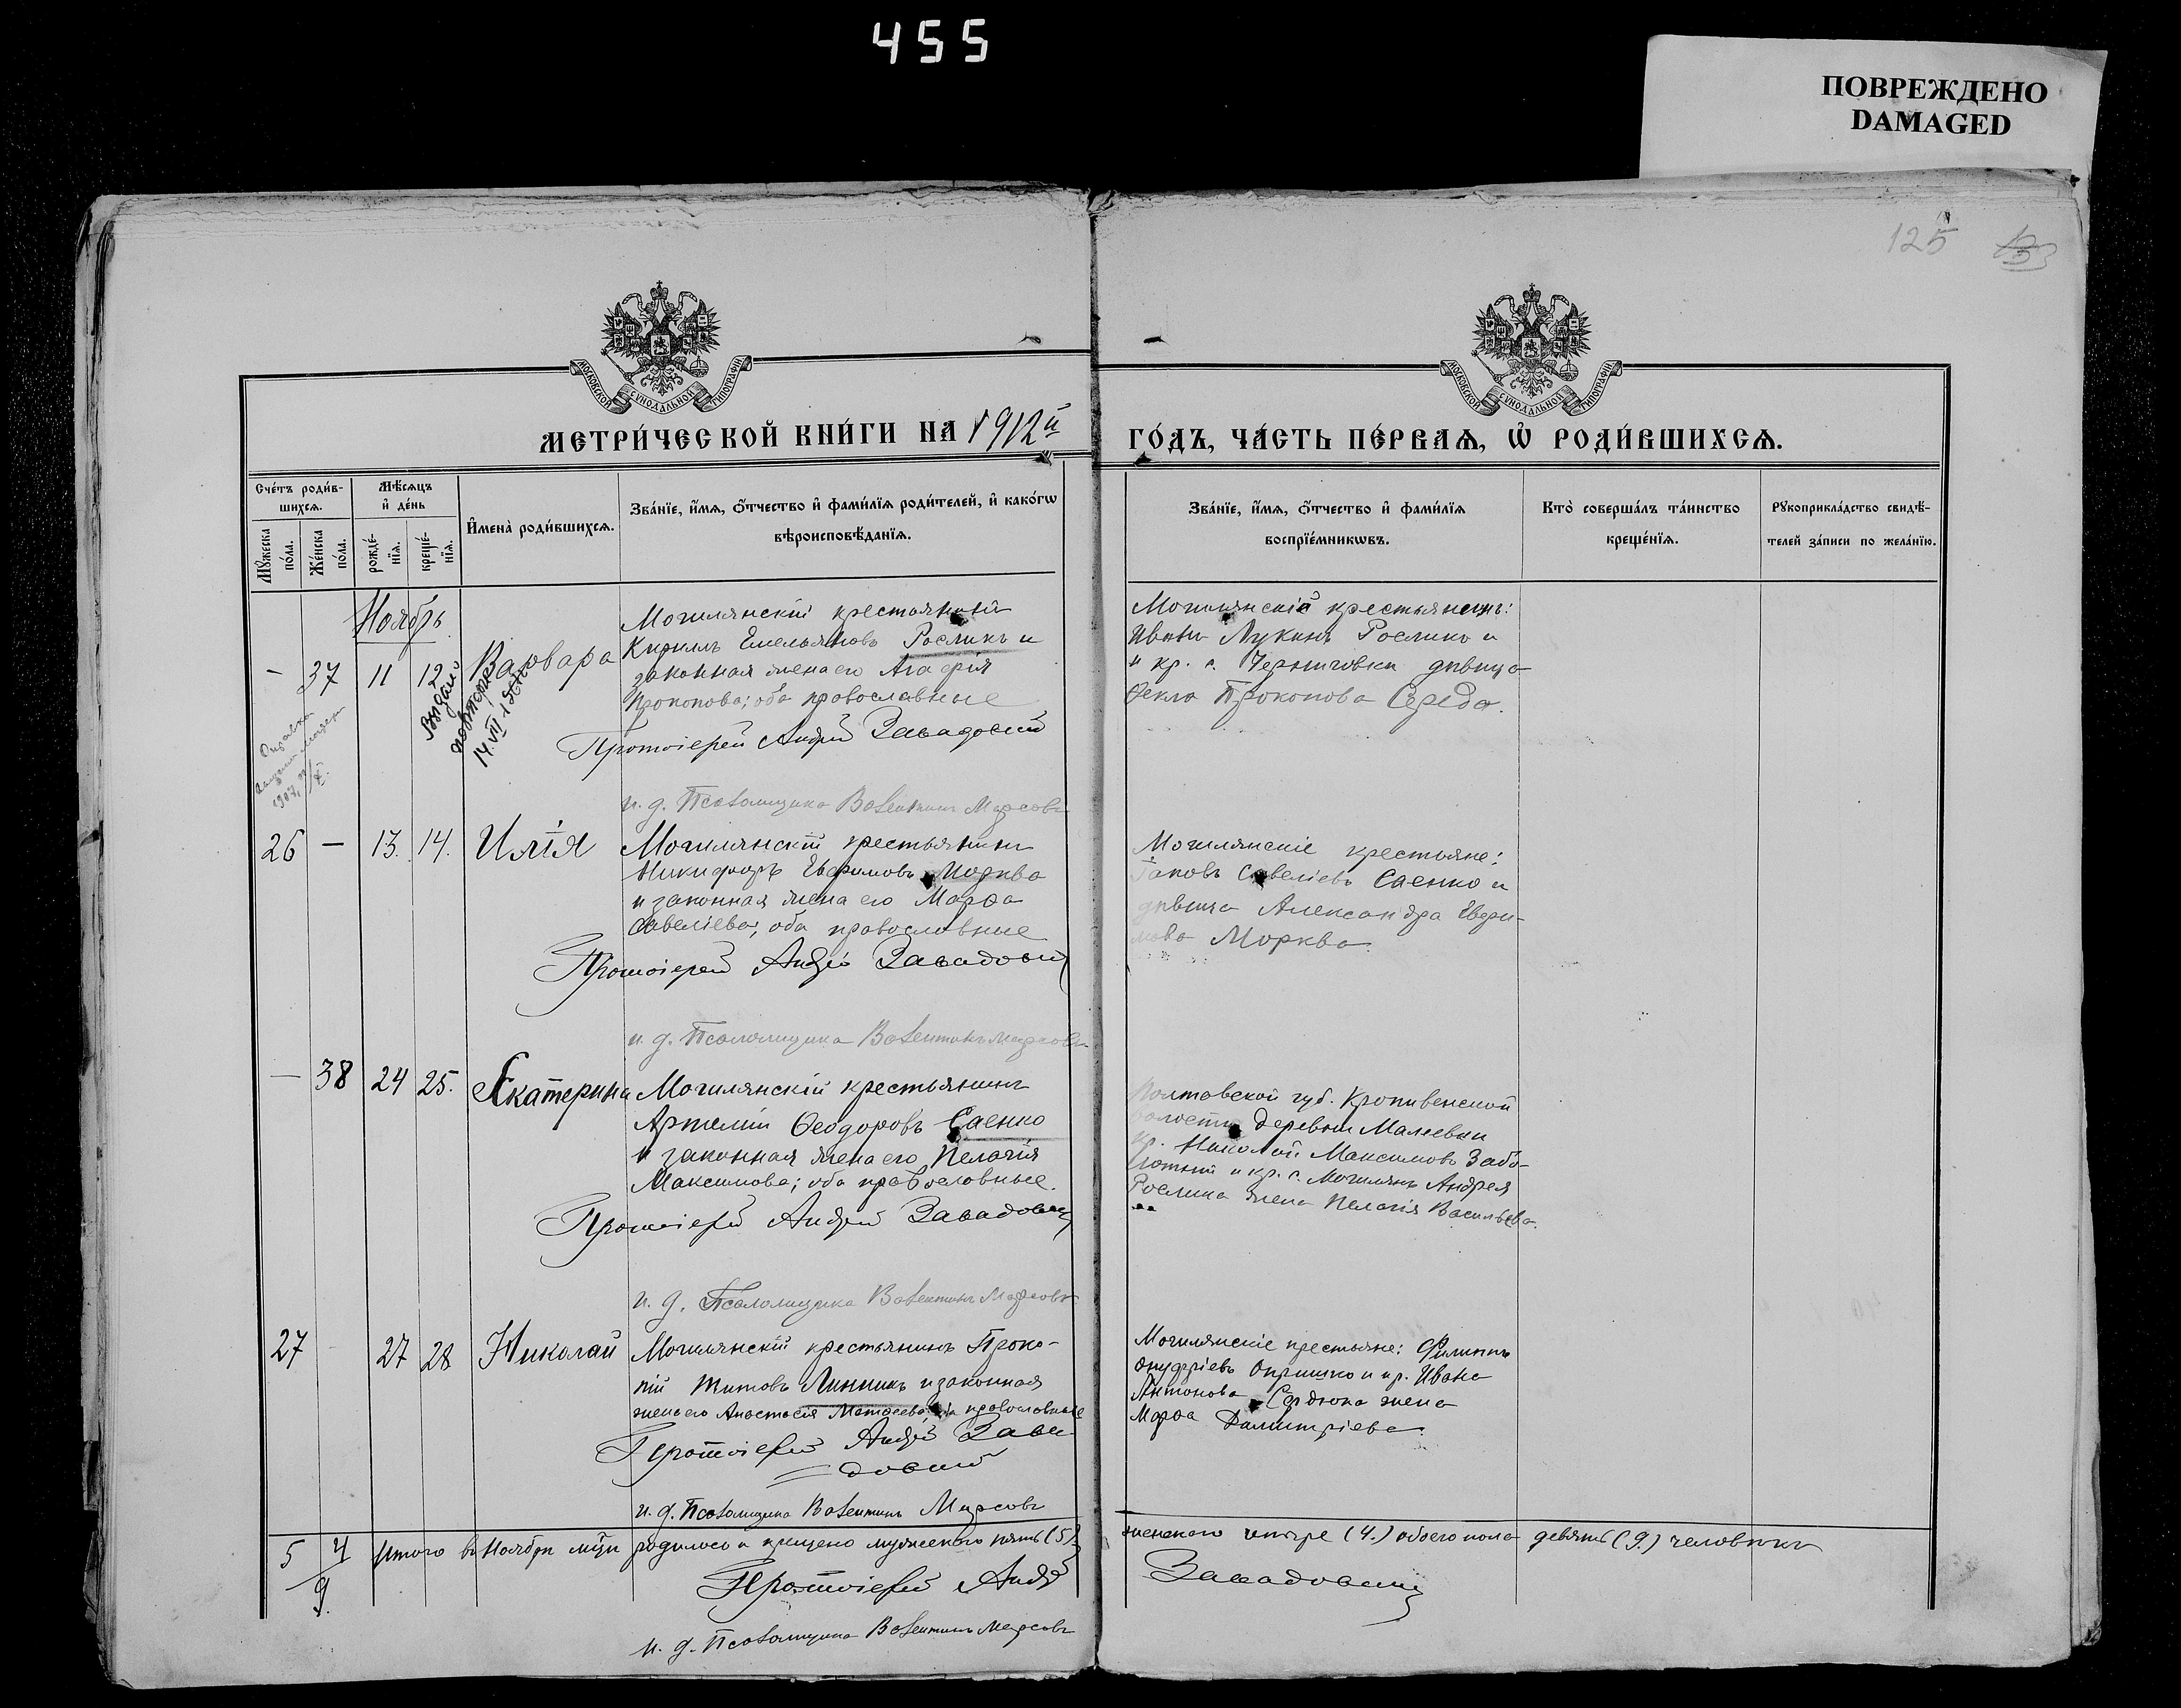 455
ПОВРЕЖДЕНО
DAMAGED
125
МОСКОВСКОЙ СУНОДАЛЬНОЙ ТИПОГРАФІИ
МОСКОВСКОЙ СУНОДАЛЬНОЙ ТИПОГРАФІИ
МЕТРИ́ЧЕСКОЙ КНИ́ГИ НА 1912й
ГО́ДЪ, ЧА́СТЬ ПЕ́РВАѦ, Ѡ҆ РОДИ́ВШИХСѦ.
Сче́тъ роди́в-
шихсѧ.
Мꙋ́жеска
по́ла.
Же́нска
по́ла.
Мѣ́сѧцъ
и҆ де́нь
рожде́-
нїѧ.
креще́-
нїѧ.
И҆мена̀ роди́вшихсѧ.
Зва́нїе, и҆́мѧ, ѻ҆́тчество и҆ фами́лїѧ роди́телей, и҆ како́гѡ
вѣроисповѣ́данїѧ.
Зва́нїе, и҆́мѧ, ѻ҆́тчество и҆ фами́лїѧ
воспрїе́мникѡвъ.
Кто̀ соверша́лъ та́инство
креще́нїѧ.
Рꙋкоприкла́дство свидѣ́-
телей за́писи по жела́нїю.
Ноябрь
- 37 11 12 Варвара
Могилянскій крестьянинъ
Кириллъ Емельяновъ Росликъ и
законная жена его Агафія
Прокопова; оба православные
Протоіерей Андрей Завадовскій
и. д. Псаломщика Валентинъ Марсовъ
Могилянскій крестьянинъ:
Иванъ Лукинъ Росликъ и
и кр. с. Черниговки дѣвица
Фекла Прокопова Середа.
Выдан
повторн
14.VII
26 - 13. 14. Илія
Могилянскій крестьянинъ
Никифоръ Евфимовъ Морква
и законная жена его Марфа
Савеліева; оба православные
Протоіерей Андрей Завадовскій
и. д. Псаломщика Валентинъ Марсовъ
Могилянскіе крестьяне:
Іаковъ Савеліевъ Саенко и
дѣвица Александра Евфи-
мова Морква.
- 38 24 25. Екатерина
Могилянскій крестьянинъ
Артемій Феодоровъ Саенко
и законная жена его Пелагія
Максимова; оба православные.
Протоіерей Андрей Завадовскій
и. д. Псаломщика Валентинъ Марсовъ
Полтавской губ. Кропивенской
волости деревни Малеевки
кр. Николай Максимовъ Забо-
лотный и кр. с. Могилянъ Андрея
Рослика жена Пелагія Васильева.
27 - 27 28 Николай
Могилянскій крестьянинъ Проко-
пій Титовъ Линникъ и законная
жена его Анастасія Матфеева; оба православные
Протоіерей Андрей Зава-
довскій
и. д. Псаломщика Валентинъ Марсовъ
Могилянскіе крестьяне: Филиппъ
Онуфріевъ Опришко и кр. Ивана
Антонова Сердюка жена
Марфа Димитріева.
5 4 Итого въ Ноябрѣ м-цѣ родилось и крещено мужескаго пять (5.)
женскаго четыре (4.) обоего пола девять (9.) человѣкъ
9.
Протоіерей Андрей Завадовскій
и. д. Псаломщика Валентинъ Марсовъ